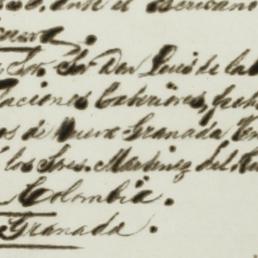 ante el escribano
Sor. Dn. Luis de la
aciones Exteriores, fecha
os de Nueva Granada
los Sres. Martinez del
Colombia.
Granada.